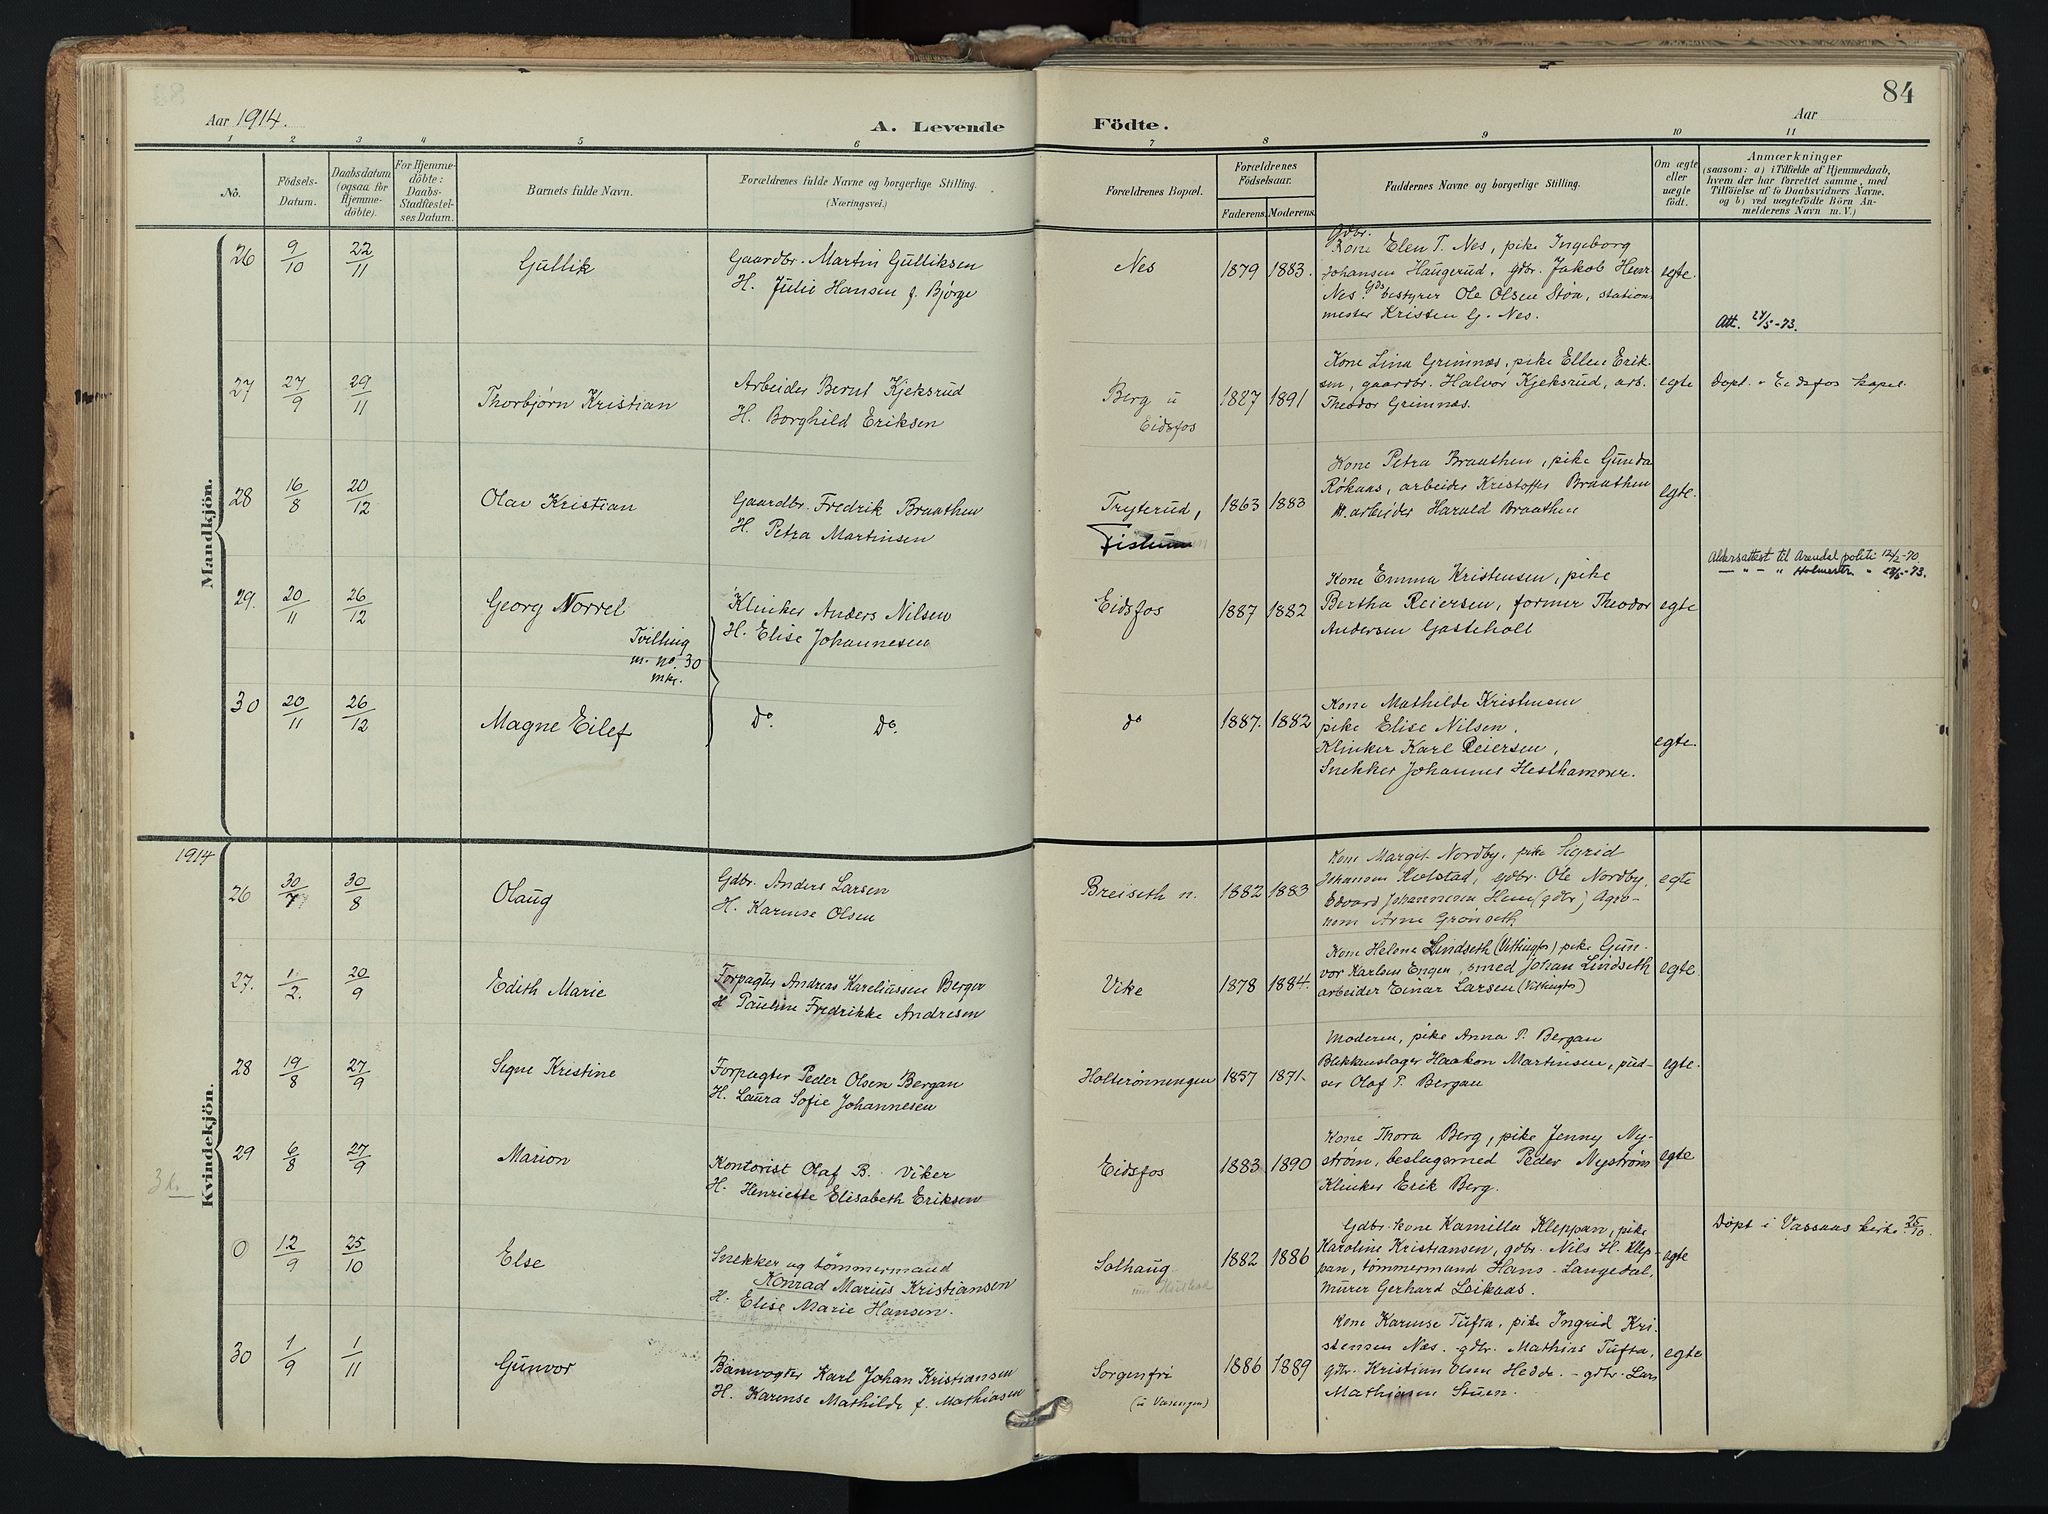 84
Aar 1914.
A. Levende Födte.
Aar
1 2 3 4 5 6 7 8 9 10 11
No.
Födsels-
Datum.
Daabsdatum
(ogsaa for
Hjemme-
döbte).
For Hjemme-
döbte:
Daabs-
Stadfæstel-
ses Datum.
Barnets fulde Navn.
Forældrenes fulde Navne og borgerlige Stilling.
(Næringsvei.)
Forældrenes Bopæl.
Forældrenes
Födselsaar.
Faderens. Moderens.
Faddernes Navne og borgerlige Stilling.
Om ægte
eller
uægte
födt.
Anmærkninger
(saasom: a) i Tilfælde af Hjemmedaab,
hvem der har forrettet samme, med
Tilföielse af to Daabsvidners Navne.
og b) ved uægtefödte Börn An-
melderens Navn m. V.)
Mandkjön.
26 9/10 22/11 Gullik
Gaardbr. Martin Gulliksen
H. Julie Hansen f. Bjørge
Nes 1879 1883.
Gdbr.
Kone Elen T. Nes, pike Ingeborg
Johansen Haugerud, gdbr. Jakob Henr
Nes. Gds bestyrer Ole Olsen Stoa, stations
mester Kristen G. Nes.
egte.
Att. 24/5-73.
27 27/9 29/11 Thorbjørn Kristian
Arbeider Bernt Kjeksrud
H. Borghild Eriksen
Berg u
Eidsfos
1827 1891
Kone Lina Grimnæs, pike Ellen Erik-
sen, gaardbr. Halvor Kjeksrud, arb.
Theodor Grimnæs.
egte
Døpt i Eidsfos kapel.
28 16/8 20/12 Olav Kristian
Gaardbr. Fredrik Braathen
H. Petra Martinsen
Tryterud,
Fiskum
1863 1883
Kone Petra Braathen, pike Gunda
Røkaas, arbeider Kristoffer Braathen
arbeider Harald Braathen
egte.
29. 20/11 26/12 Georg Norrel
Tvilling
m. no. 30
mk.
Klinker Anders Nilsen
H. Elise Johannesen
Eidsfos 1887 1882
Kone Emma Kristensen, pike
Bertha Reiersen, former Theodor
Andersen Gasteholt
egte
Aldersattest til Arendal politi 12/2-70
— " - " Holmestr. " 28/5-73.
30 20/11 26/12 Magne Eilef
Do. Do.
do 1887. 1882
Kone Mathilde Kristensen
pike Elise Nilsen.
Klinker Karl Reiersen,
Snekker Johannes Hesthammer.
egte.
1914
Kvindekjön.
26 30/7 30/8 Olaug
Gdbr. Anders Larsen
H. Karense Olsen
Breiseth n. 1882 1883
Kone Margit Nordby, pike Sigrid
Johansen Kolstad, gdbr. Ole Nordby,
Edvard Johannesen Hem (gdbr) Agro-
nom Arne Grønseth
egte
27. 1/2. 20/9 Edith Marie
Forpagter Andreas Kareliussen Berger
H. Pauline Fredrikke Andresen
Vike 1878 1884.
Kone Helene Lindseth (Vittingfos) pike Gun-
vor Karlsen Engen, smed Johan Lindseth
arbeider Einar Larsen (Vittingfos)
egte.
28 19/8 27/9 Signe Kristine
Forpagter Peder Olsen Bergan
H. Laura Sofie Johannesen
Holterønningen 1857 1871-
Moderen, pike Anna P. Bergan
Blikkenslager Haakon Martinsen, pud-
ser Olaf P. Bergan
egte.
29 6/8 27/9 Marion
Kontorist Olaf B. Viker
H. Henriette Elisabeth Eriksen
Eidsfos 1883 1890
Kone Thora Berg, pike Jenny Ny-
strøm, beslagsmed Peder Nystrøm
Klinker Erik Berg.
egte
3 k.
0 12/9 25/10 Else
Snekker og tømmermand
Konrad Marius Kristiansen
H. Elise Marie Hansen.
Solhaug
1882 1886
Gdbr. kone Kamilla Kleppan, pike
Karoline Kristiansen, gdbr. Nils H. Klep-
pan, tømmermand Hans Langedal,
murer Gerhard Leikaas.
egte
Døpt i Vassaas kirke 25/10.
30 1/9 1/11 Gunvor
Banevogter Karl Johan Kristiansen
H. Karense Mathilde f. Mathiasen
Sorgenfri
(u Vasengen)
1886 1889
Kone Karense Tufta, pike Ingrid Kri-
stensen Næs. gdbr. Mathias Tufta,
gdbr. Kristian Olsen Hedde. - gdbr. Lars
Mathiasen Stuen.
egte